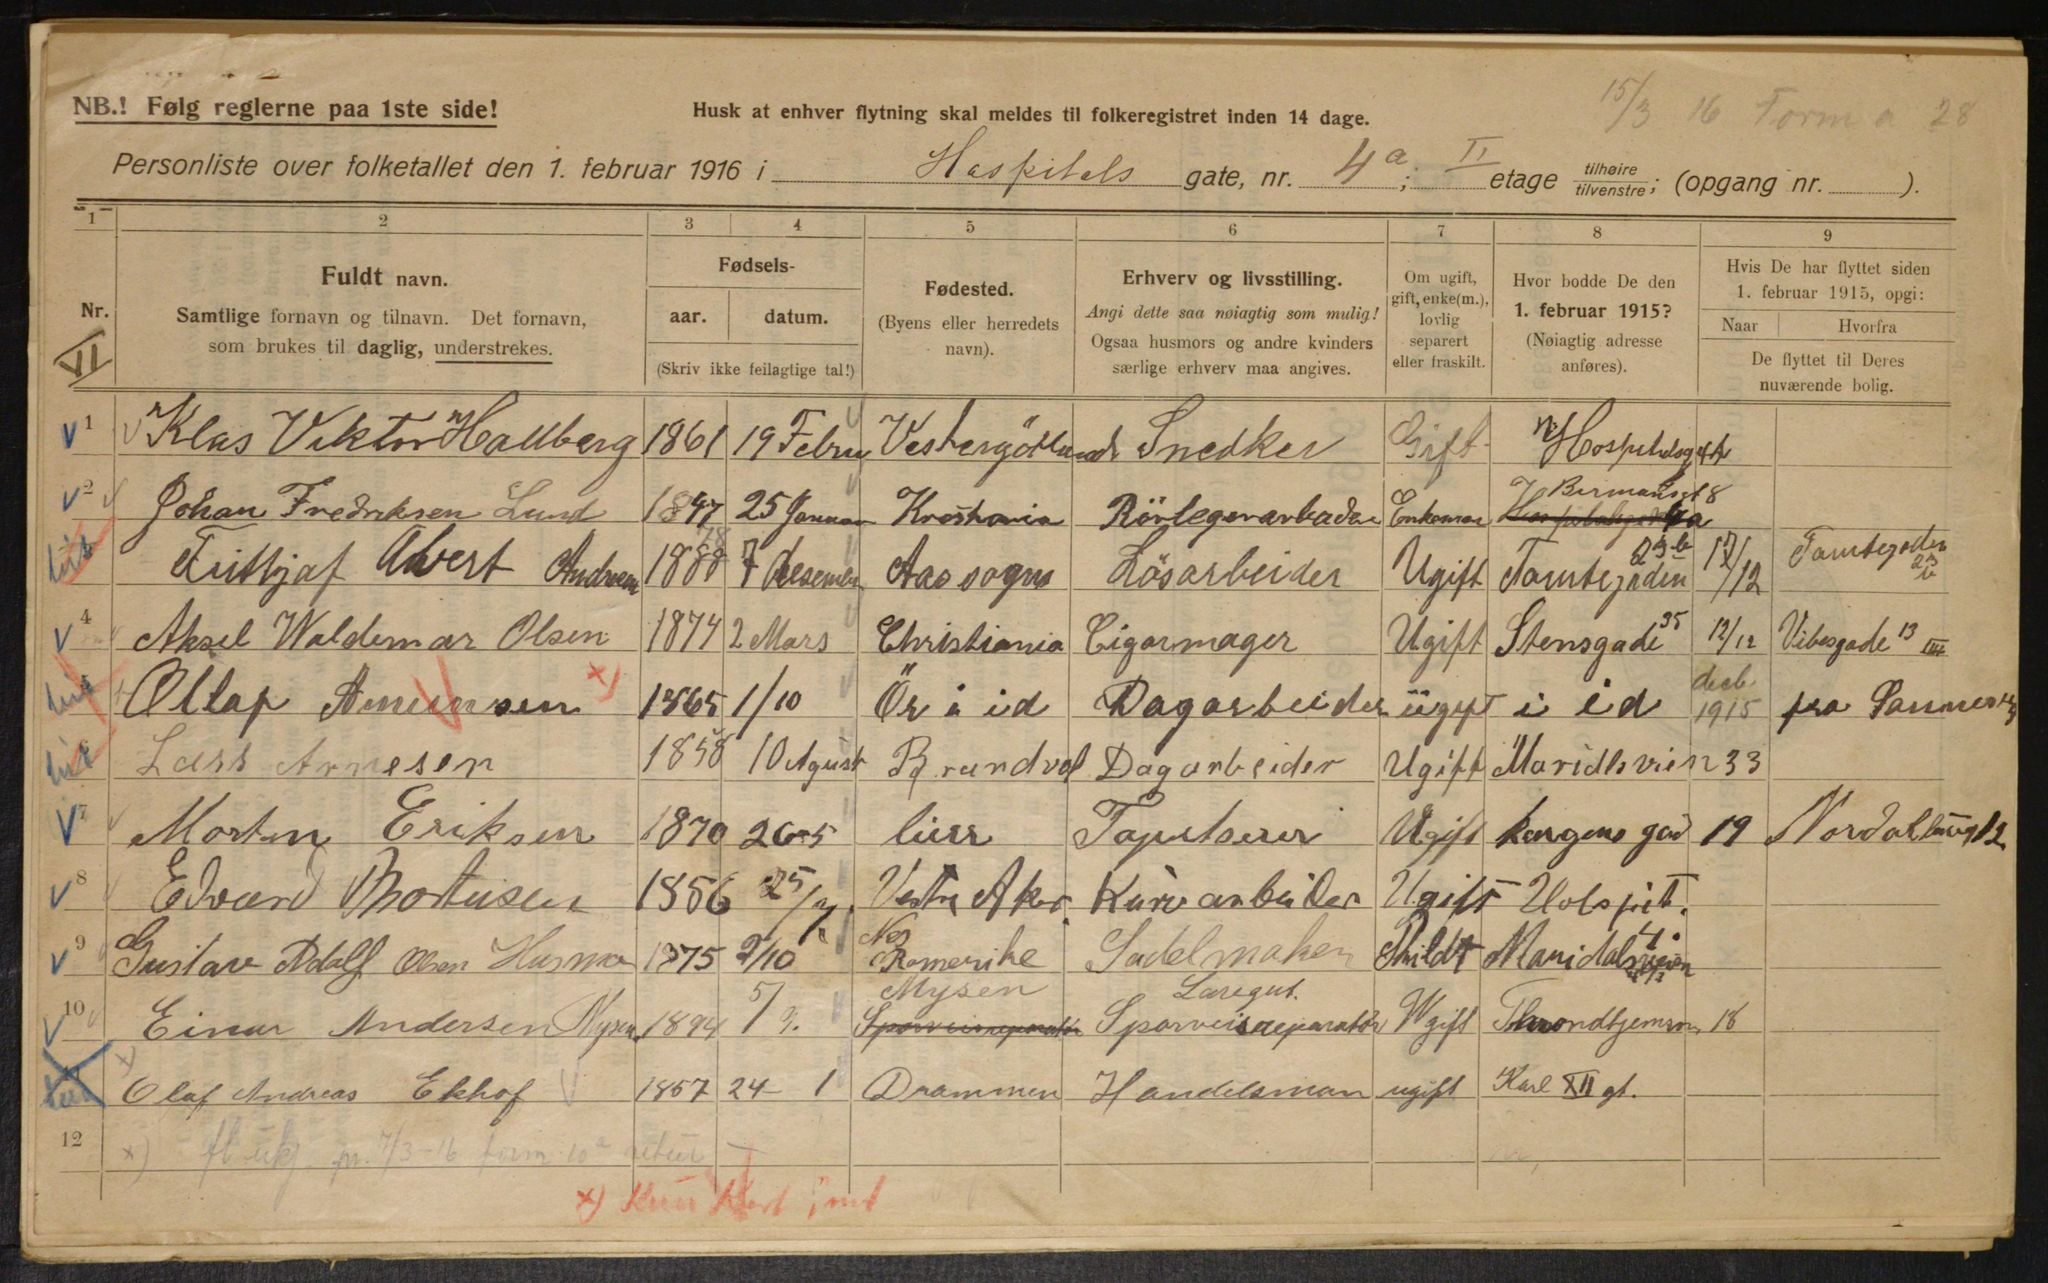 15/3 16 Form a 28
NB.! Følg reglerne paa 1ste side!
Husk at enhver flytning skal meldes til folkeregistret inden 14 dage.
Personliste over folketallet den 1. februar 1916 i Hospitals gate, nr. 4a; II etage tilhøire/tilvenstre; (opgang nr. ).
1 2 3 4 5 6 7 8 9
Nr.
Fuldt navn.
Samtlige fornavn og tilnavn. Det fornavn,
som brukes til daglig, understrekes.
Fødsels-
aar. datum.
(Skriv ikke feilagtige tal!)
Fødested.
(Byens eller herredets
navn).
Erhverv og livsstilling.
Angi dette saa nøiagtig som mulig!
Ogsaa husmors og andre kvinders
særlige erhverv maa angives.
Om ugift,
gift, enke(m.),
lovlig
separert
eller fraskilt.
Hvor bodde De den
1. februar 1915?
(Nøiagtig adresse
anføres).
Hvis De har flyttet siden
1. februar 1915, opgi:
Naar Hvorfra
De flyttet til Deres
nuværende bolig.
VI
1 Klas Viktor Hallberg 1861 19 Febru Snedker Gift
2 Johan Fredriksen Lund 1847 25 Januar Kristiania Rörlegerarbeder Enkeman
Albert Andresen 1888 7 desember Aas sogn Lösarbeider Ugift Tomtegaden 23 b 17/12 Tomtegaden 23 b
4 Aksel Waldemar Olsen 1874 2 Mars Christiania Cigarmager Ugift Stensgade 35 12/12 Vibesgade 13 III
Ollaf Amunsen x) 1865 1/10 Ör i id Dagarbeider ügift i id desb 1915 fra
6 Lars Arnesen 1858 10 Agust Brandval Dagarbeider Ugift Maridlsvien 33
7 Morten Eriksen 1870 26-5 lier Tapetserer Ugift 19
8 Edvard Mortusen 1856 25/ Vestre Aker Kurvarbeider Ugift
9 Gustav Adolf Olsen 1875 2/10 Nes Romerike Sadelmaker Skildt Maridalsveien
10 Einar Andersen Mysen 1894 5/3. Mysen Sporveisreparatør Ugift Throndhjemsvn 18
x) Olaf Andreas Ekhof 1857 24 1 Drammen Handelsman ugift Karl XII gt.
12
x) pr. 7/3-16 form 10a retur
x)